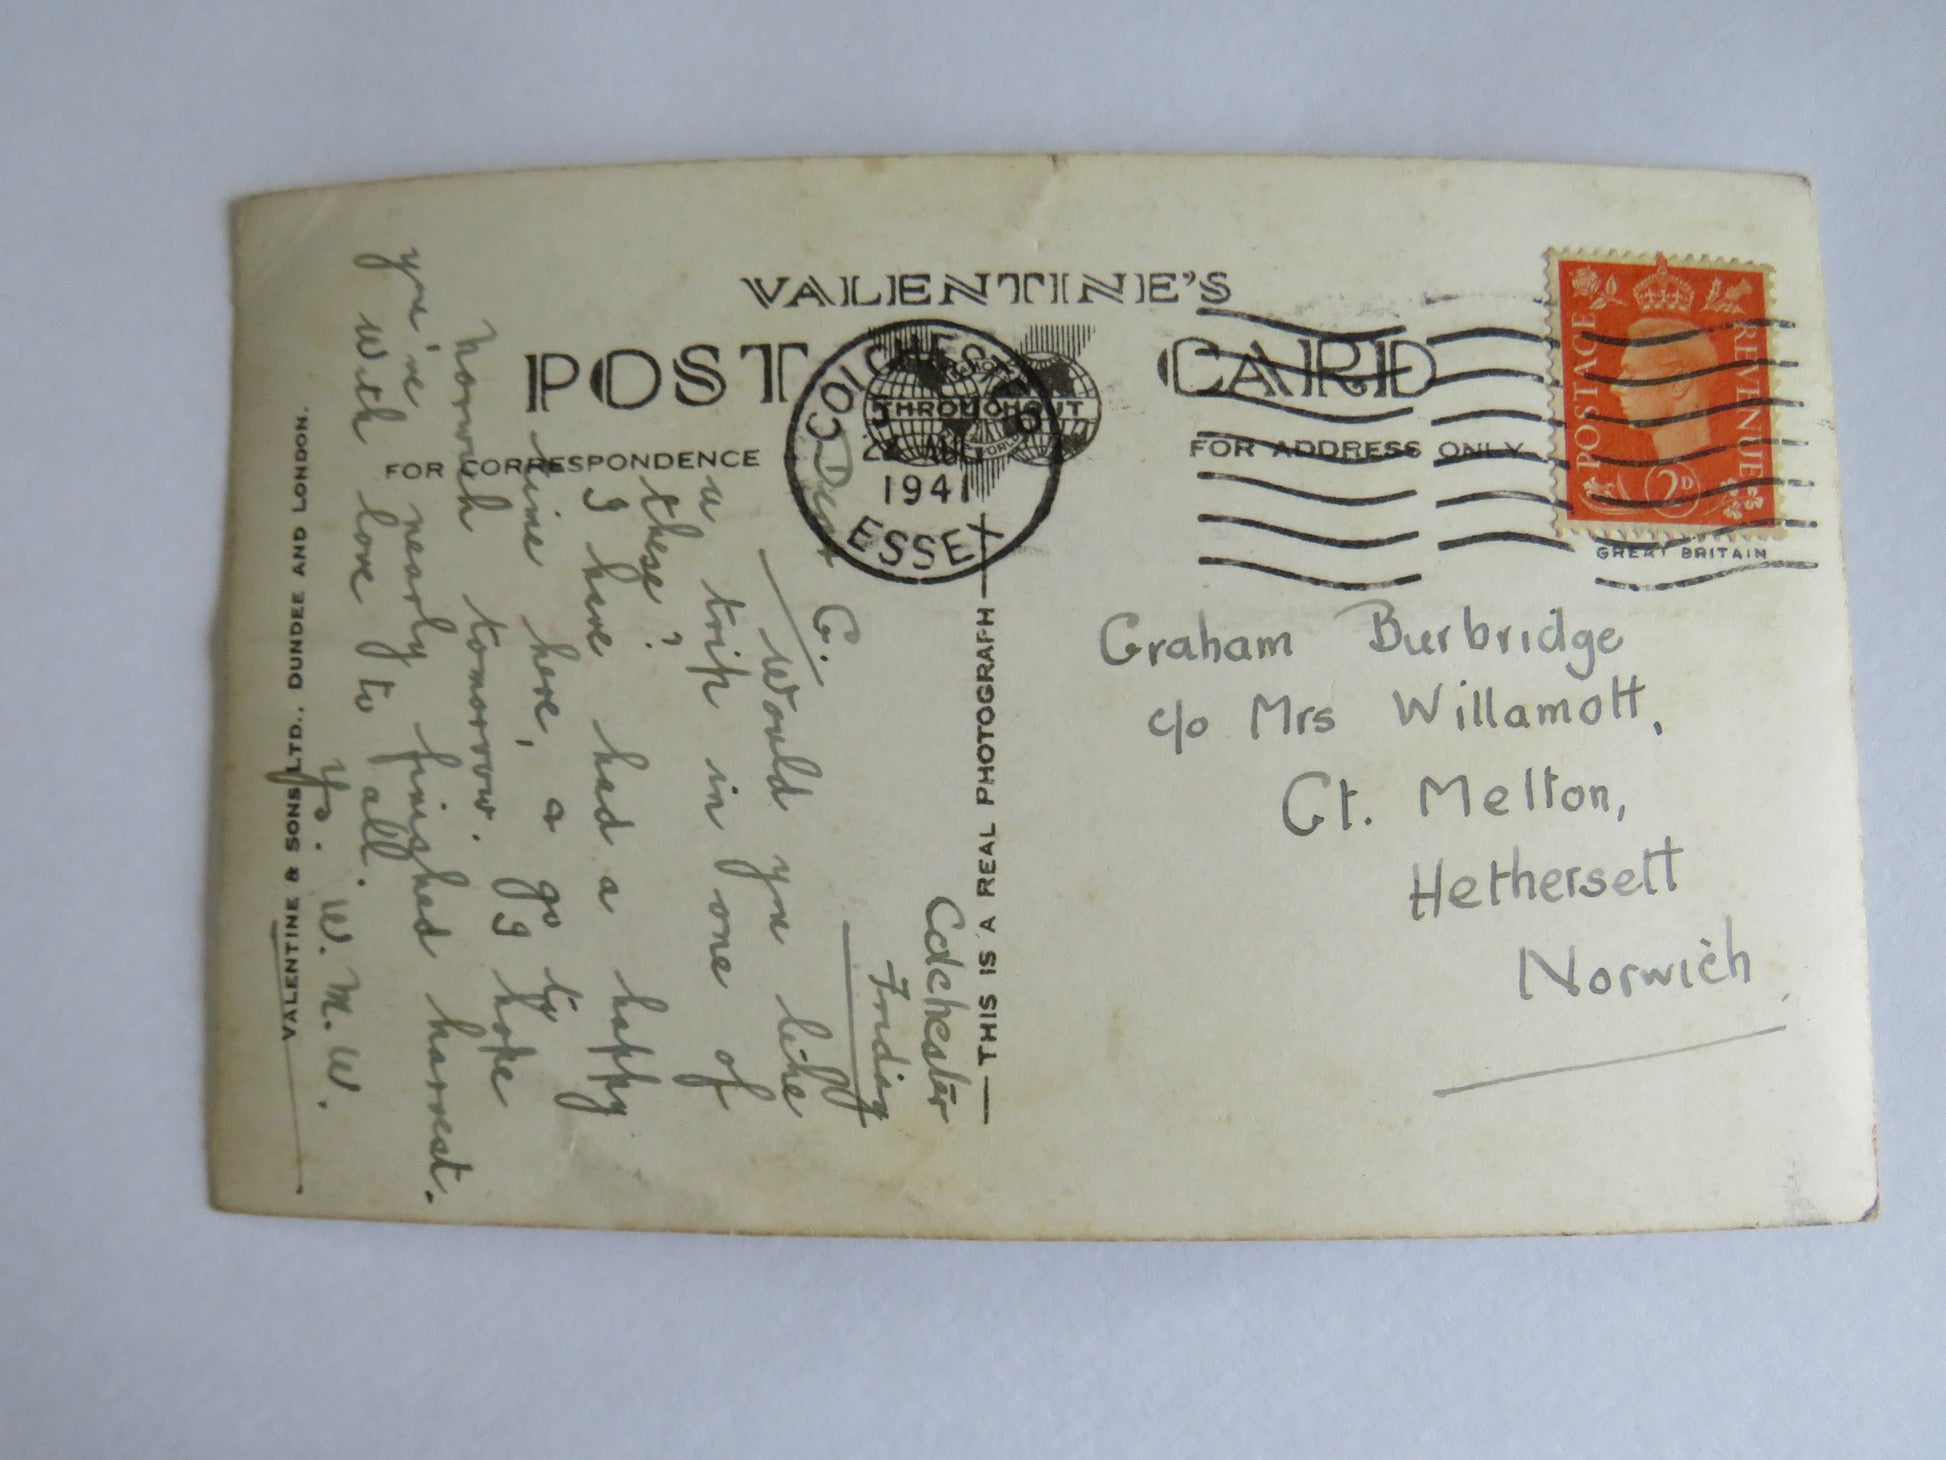 VALENTINE'S
POST CARD
THROUGHOUT
WORLD
FOR CORRESPONDENCE
FOR ADDRESS ONLY
COLCHESTER
AUG
1941
ESSEX
POSTAGE REVENUE
2D
GREAT BRITAIN
Graham Burbridge
c/o Mrs Willamott,
Gt. Melton,
Hethersett
Norwich
Colchester
Friday
Dear G.
Would you like
a trip in one of
these?
I have had a happy
time here, a go to
Norwich tomorrow. I hope
you've nearly finished harvest.
With love to all.
Ys. W. M. W.
THIS IS A REAL PHOTOGRAPH
VALENTINE & SONS LTD., DUNDEE AND LONDON.